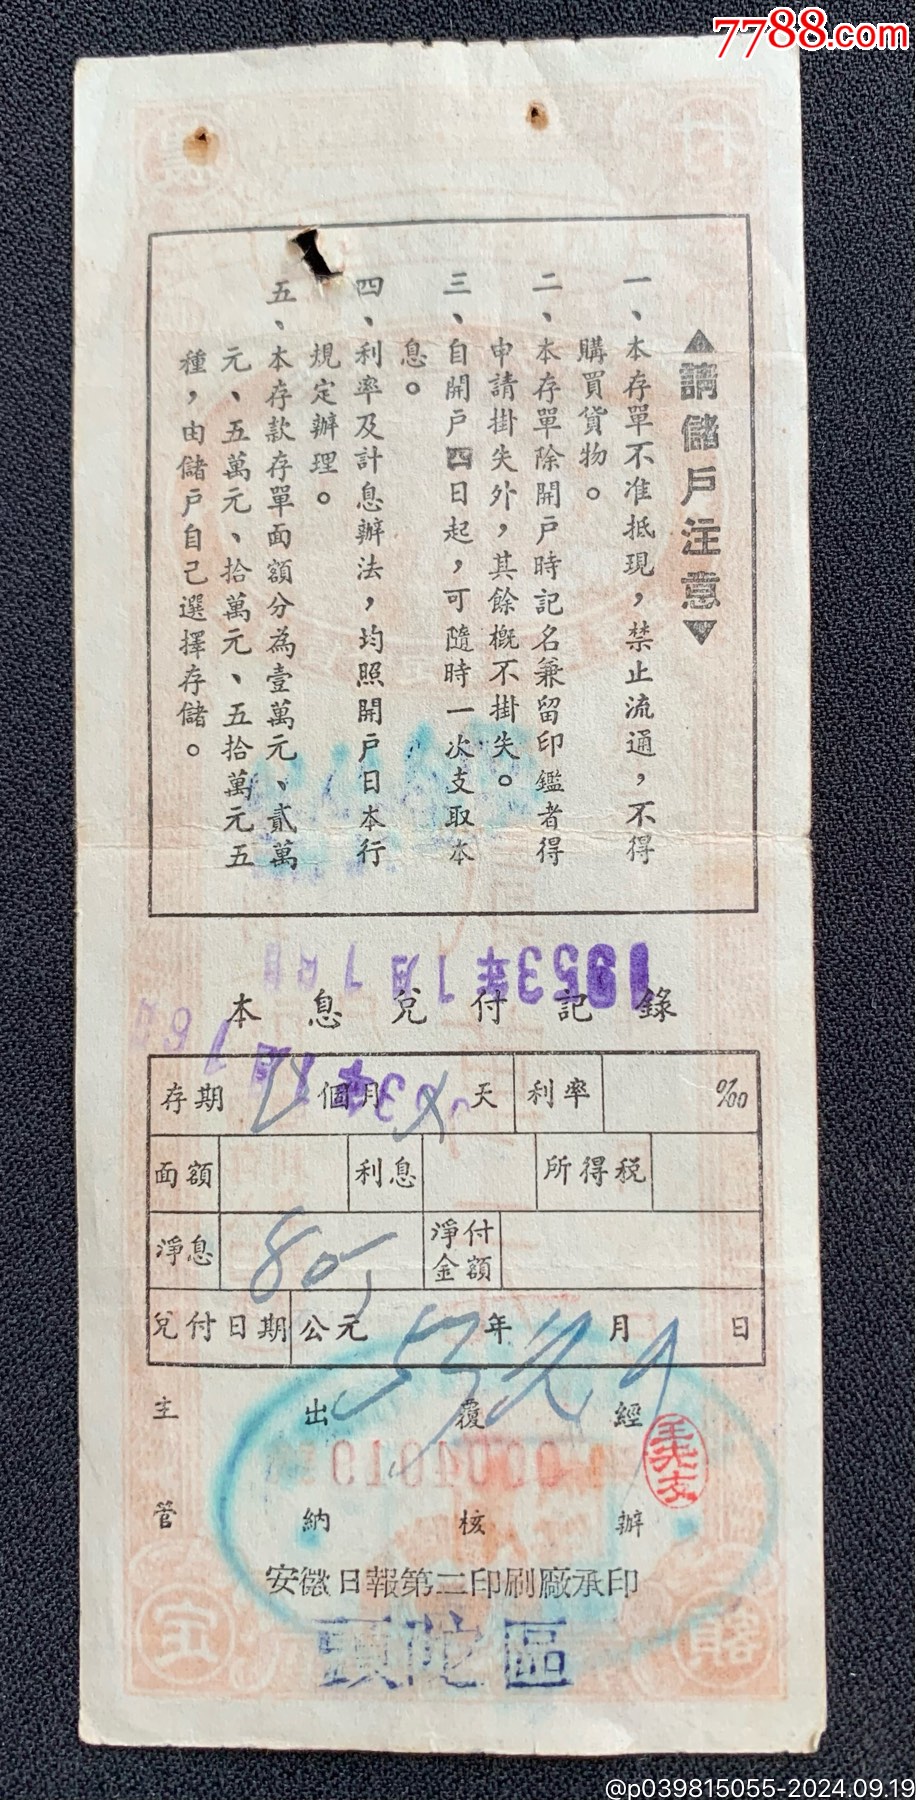 7788.com
▲請儲戶注意▼
一、本存單不准抵現，禁止流通，不得
購買貨物。
二、本存單除開戶時記名兼留印鑑者得
申請掛失外，其餘概不掛失。
三、自開戶四日起，可隨時一次支取本
息。
四、利率及計息辦法，均照開戶日本行
規定辦理。
五、本存款存單面額分為壹萬元、貳萬
元、五萬元、拾萬元、五拾萬元五
種，由儲戶自己選擇存儲。
1953年1月
本息兌付記錄
存期 個月 天 利率 ‰
面額 利息 所得税
淨息 80 淨付金額
兌付日期 公元 53 年 月 日
主管 出納 覆核 經辦
0004010
安徽日報第二印刷廠承印
頭陀區
@p039815055-2024.09.19